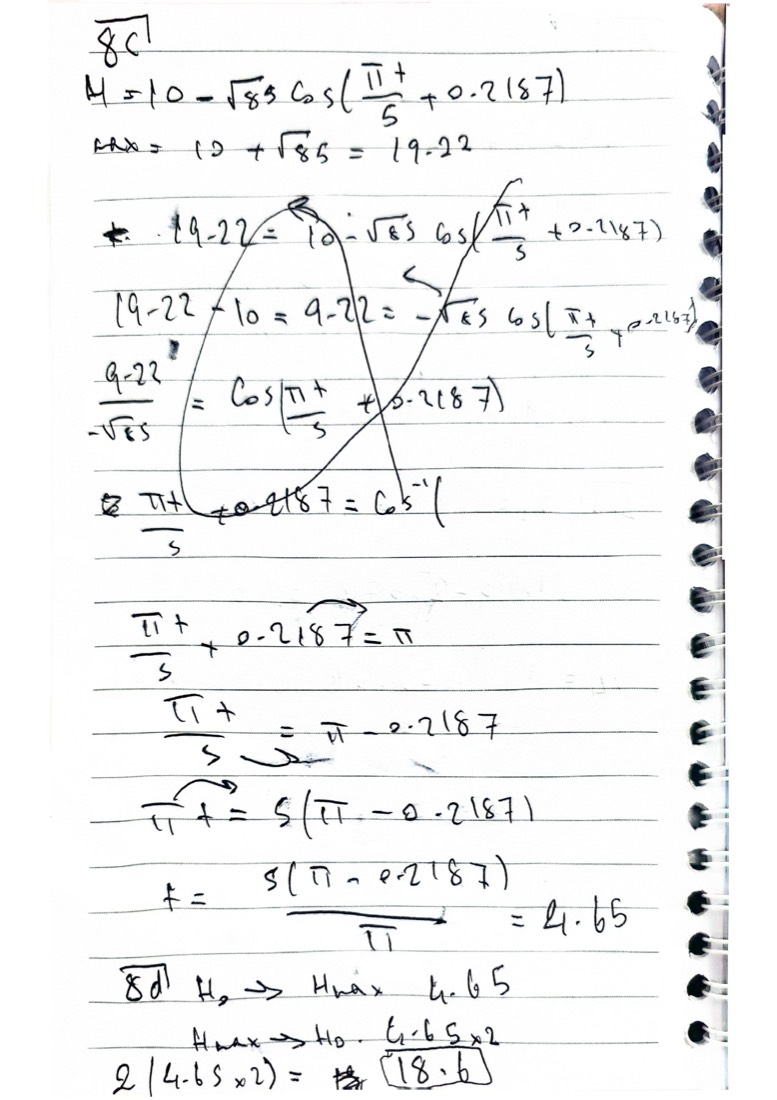 8c
H = 10 - √85 Cos(πt/5 + 0.2187)
max = 10 + √85 = 19.22
t. 19.22 = 10 - √85 Cos(πt/5 + 0.2187)
19.22 - 10 = 9.22 = -√85 Cos(πt/5 + 0.2187)
9.22/-√85 = Cos(πt/5 + 0.2187)
πt/5 + 0.2187 = Cos⁻¹(
πt/5 + 0.2187 = π
πt/5 = π - 0.2187
πt = 5(π - 0.2187)
t = 5(π - 0.2187)/π = 4.65
8d H₀ → Hmax 4.65
Hmax → H₀. 4.65×2
2(4.65×2) = 18.6